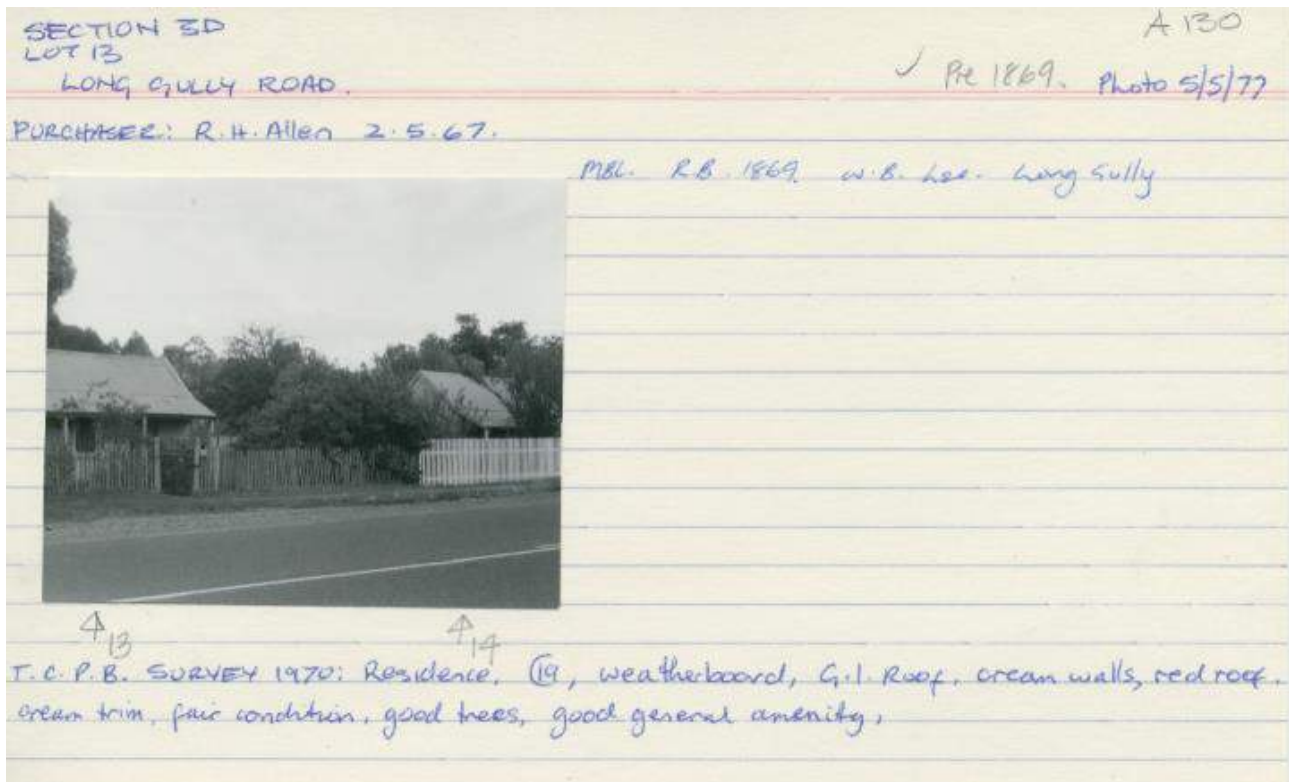 SECTION 3D
LOT 13
LONG GULLY ROAD.
A 130
✓ Pre 1869. Photo 5/5/77
PURCHASER: R.H. Allen 2.5.67.
MBL. R.B. 1869. W.B. Lee. Long Gully
↑13 ↑14
T.C.P.B. SURVEY 1970: Residence, 19, weatherboard, G.I. Roof, cream walls, red roof.
cream trim, fair condition, good trees, good general amenity,